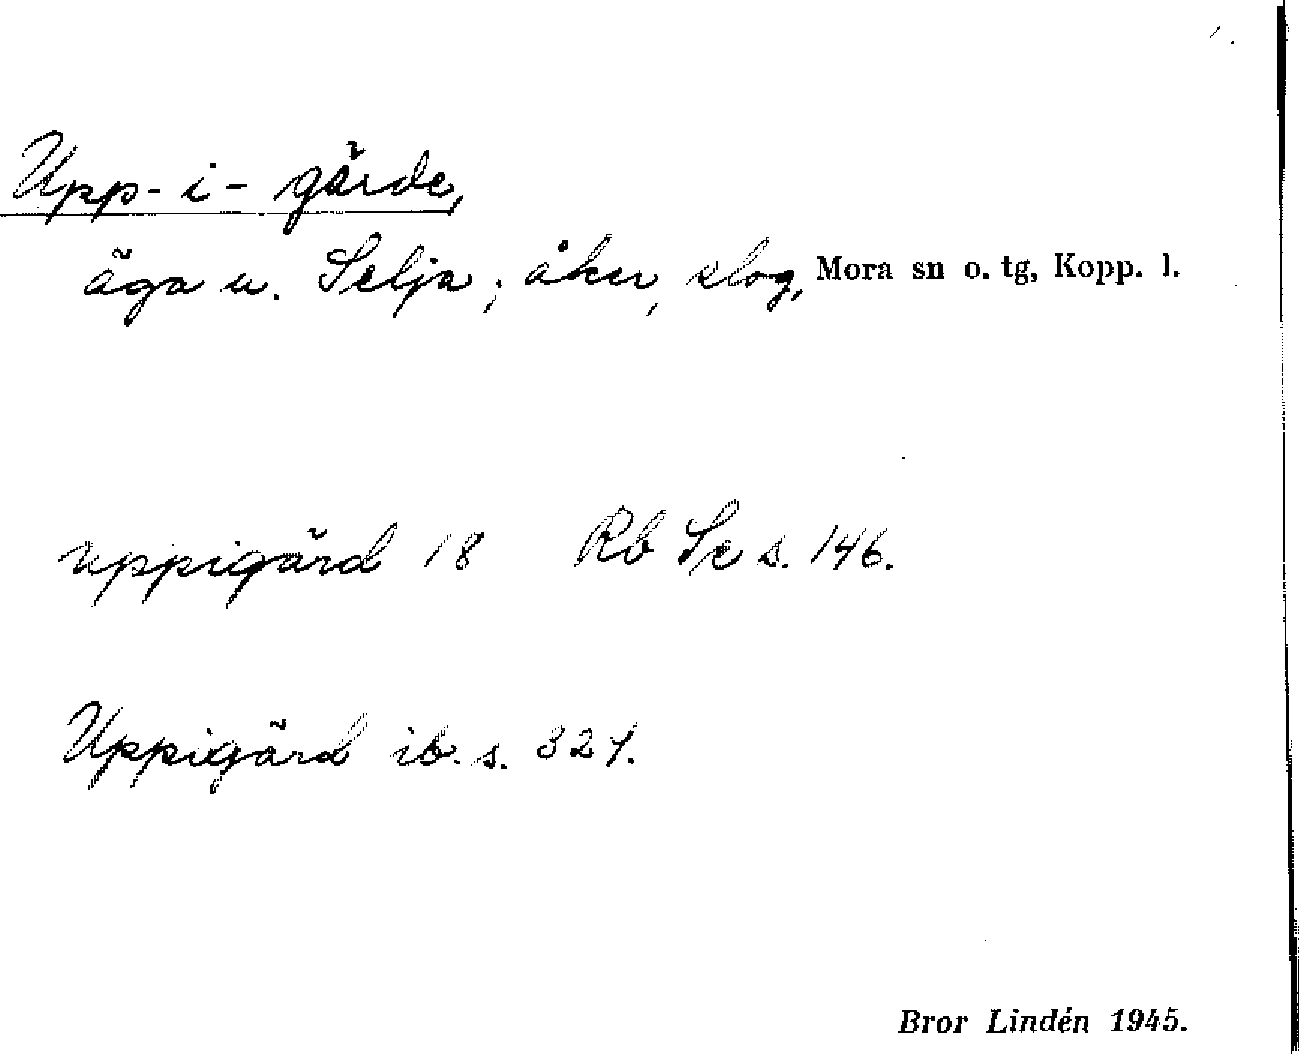 Upp-i-gärde,
äga u. Selja; åker, slog, Mora sn o. tg, Kopp. l.
uppigärd 18 Rb Se s. 146.
Uppigärd ib. s. 321.
Bror Lindén 1945.